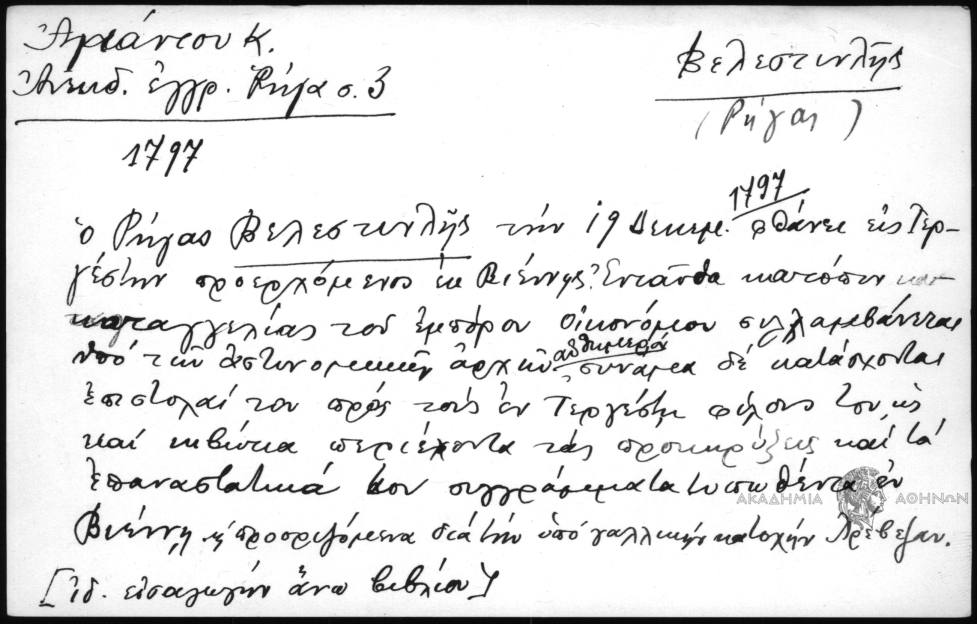 Ἀμάντου Κ.
Ἀνεκδ. ἔγγρ. Ρήγα σ. 3
1797
Βελεστινλῆς
(Ρήγας)
1797
ὁ Ρήγας Βελεστινλῆς τήν 19 Δεκεμ. φθάνει εἰς Τερ-
γέστην προερχόμενος ἐκ Βιέννης. Ἐνταῦθα κατόπιν
καταγγελίας τοῦ ἐμπόρου Οἰκονόμου συλλαμβάνεται
αὐθημερόν
ὑπό τῶν ἀστυνομικῶν ἀρχῶν συνάμα δέ κατάσχονται
ἐπιστολαί του πρός τούς ἐν Τεργέστῃ φίλους του, ὡς
καί κιβώτια περιέχοντα τάς προκηρύξεις καί τά
ἐπαναστατικά του συγγράμματα τυπωθέντα ἐν
ΑΚΑΔΗΜΙΑ ΑΘΗΝΩΝ
Βιέννῃ, προοριζόμενα διά τήν ὑπό γαλλικήν κατοχήν Πρέβεζαν.
[ἰδ. εἰσαγωγήν ἄνω βιβλίου]